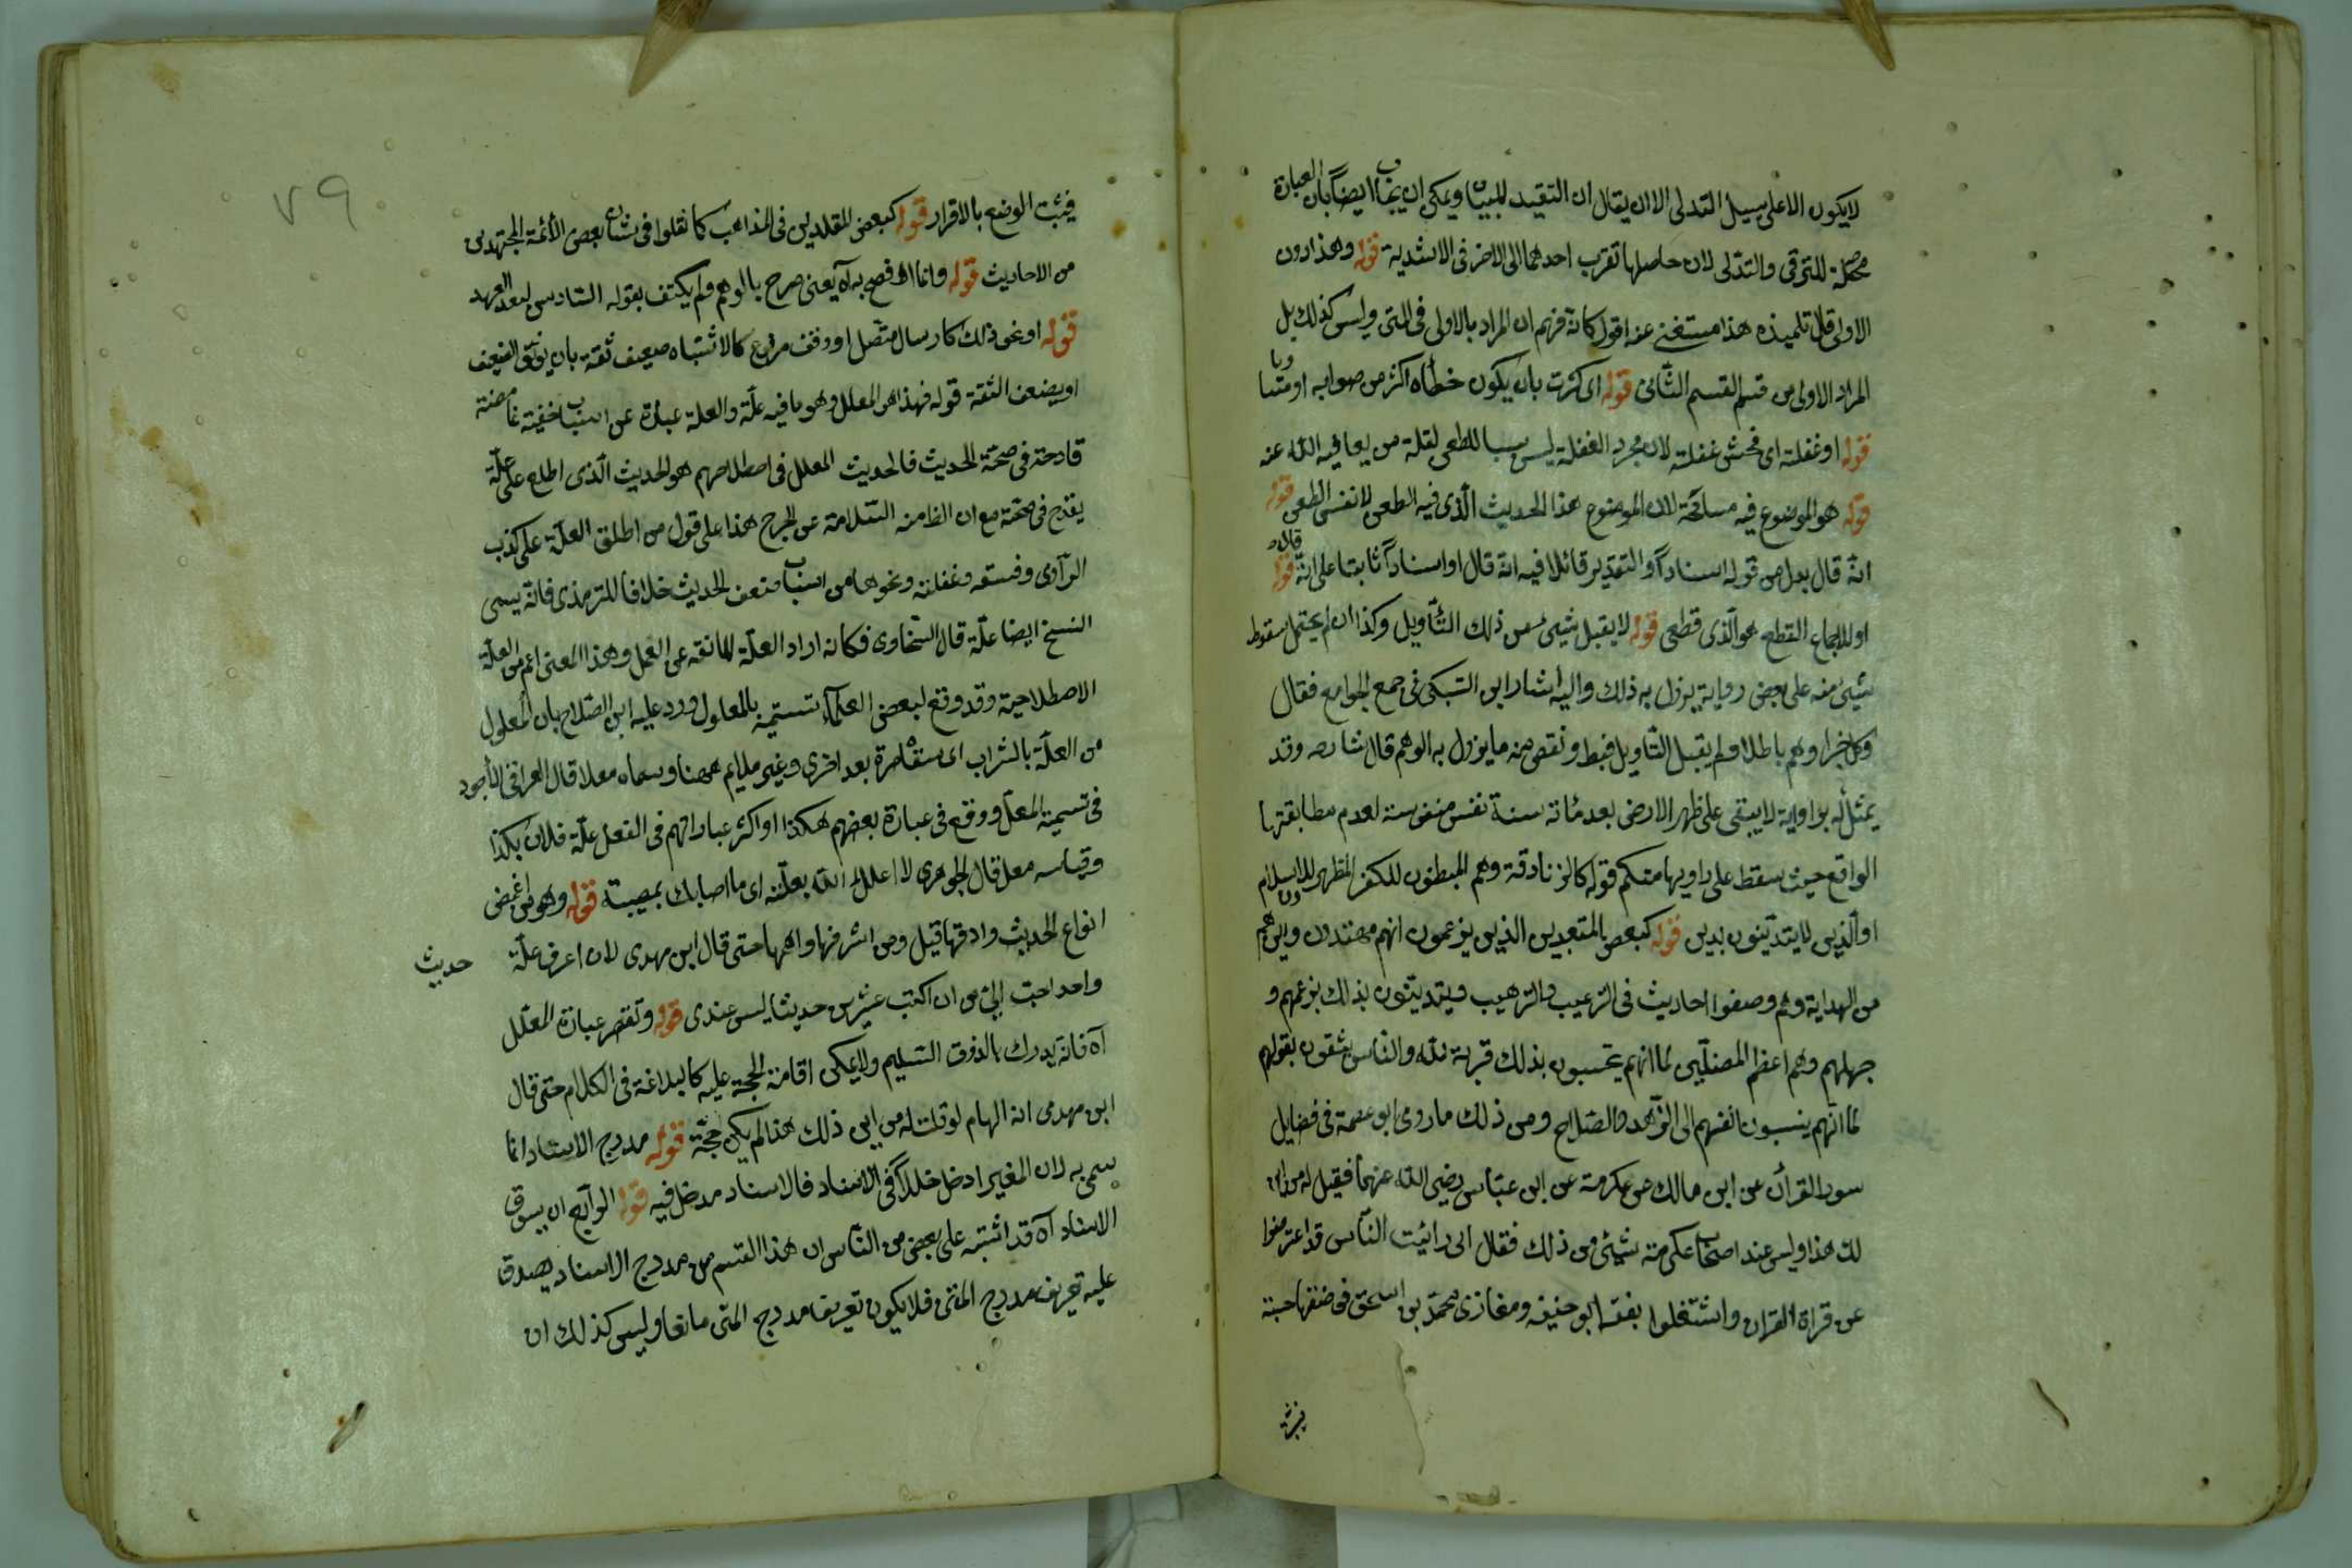 لايكون الاعلى سبيل التدلى الا ان يقال ان التقييد للبيان ويمكن ان يجاب ايضاً بان العبارة
محتملة للترقى والتدلى لان حاصلها تقرب احدهما الى الاخر فى الاشدية قوله وهذا دون
الاولى قال تلميذه هذا مستغنى عنه اقول كانه فهم ان المراد بالاولى فى المتن وليس كذلك بل
المراد الاولى من قسم القسم الثانى قوله اى كثرت بان يكون خطأه اكثر من صوابه او متساويا
قوله او غفلته اى فحش غفلته لان مجرد الغفلة ليس سببا للطعن لقلة من يعافيه الله عنه
قوله هو الموضوع فيه مسامحة لان الموضوع هذا الحديث الذى فيه الطعن لا نفس الطعن قوله
انه قال بدل من قوله اسناداً والتقدير قائلا فيه انه قال او اسناداً ثابتا على انه قال قوله
او للاجماع القطع هو الذى قطعى قوله لا يقبل شيئ من ذلك التأويل وكذا ان لم يحتمل سقوط
شيئ منه على بعض رواية يزول به ذلك واليه اشار ابن السبكى فى جمع الجوامع فقال
وكل خبر اوهم باطلا ولم يقبل التأويل فبط ونقص منه ما يزول به الوهم قال شارحه وقد
يمثل له بواوية لا يبقى على ظهر الارض بعد مائة سنة نفس منفوسة لعدم مطابقتها
الواقع حيث سقط على راويها منكم قوله كالزنادقة وهم المبطنون للكفر المظهرون للاسلام
او الذين لا يتدينون بدين قوله كبعض المتعبدين الذين يزعمون انهم مهتدون واين هم
من الهداية وهم وصفوا احاديث فى الترغيب والترهيب ويتدينون بذلك بزعمهم و
جهلهم وهم اعظم المضلين لما انهم يحتسبون بذلك قربة لله والناس يثقون بقولهم
لما انهم ينسبون انفسهم الى الزهد والصلاح ومن ذلك ما روى ابو عصمة فى فضايل
سور القرأن عن ابن مالك عن عكرمة عن ابن عباس رضى الله عنهما فقيل له من اين
لك هذا وليس عند اصحاب عكرمة شيئ من ذلك فقال انى رائيت الناس قد اعرضوا
عن قراة القران واشتغلوا بفقه ابو حنيفه ومغازى محمد بن اسحق فوضعتها حسبة
فيثبت الوضع بالاقرار قوله كبعض المقلدين فى المذاهب كما نقلوا فى شان بعض الأئمة المجتهدين
من الاحاديث قوله وانما افصح به آه يعنى صرح بالوهم ولم يكتف بقوله السادس لبعد العهد
قوله او نحو ذلك كارسال متصل او وقف مرفوع كالاشتباه ضعيف ثقة بان يوثق الضعيف
او يضعف الثقة قوله فهذا هو المعلل وهو ما فيه علة والعلة عبارة عن اسباب خفية غامضة
قادحة فى صحة الحديث فالحديث المعلل فى اصطلاحهم هو الحديث الذى اطلع على علة
يقدح فى صحته مع ان الظ منه السلامة عن الجرح هذا على قول من اطلق العلة على كذب
الرآوى وفسقه وغفلته ونحوها من اسباب ضعف الحديث خلافا للترمذى فانه يسمى
النسخ ايضا علة قال السخاوى فكانه اراد العلة المانعة عن العمل وهذا المعنى اعم من العلة
الاصطلاحية وقد وقع لبعض العلمآء تسميته بالمعلول ورد عليه ابن الصلاح بان المعلول
من العلة بالشراب اى سقاه مرة بعد اخرى وغير ملايم ههنا وسماه معلا قال العراقى الأجود
فى تسميته المعل ووقع فى عبارة بعضهم هكذا او اكثر عباراتهم فى الفعل علة فلان بكذا
وقياسه معل قال الجوهرى لا اعلك الله بعلة اى ما اصابك بمصيبة قوله وهو من اغمض
انواع الحديث وادقها قيل ومن اشرفها واهمها حتى قال ابن مهدى لان اعرف علة حديث
واحد احب الىّ من ان اكتب عشرين حديثا ليس عندى قوله وتقصر عبارة المعلل
آه فانه يدرك بالذوق السليم ولا يمكن اقامة الحجة عليه كالبلاغة فى الكلام حتى قال
ابن مهدى انه الهام لو قلت له من اين ذلك هذا لم يكن حجة قوله مدرج الاسناد انما
سمى به لان المغير ادخل خللاً فى الاسناد فالاسناد مدخل فيه قوله الرآبع ان يسوق
الاسناد آه قد اشتبه على بعض من الناس ان هذا القسم من مدرج الاسناد يصدق
عليه تعريف مدرج المتن فلا يكون تعريف مدرج المتن مانعا وليس كذلك ان
٧٩